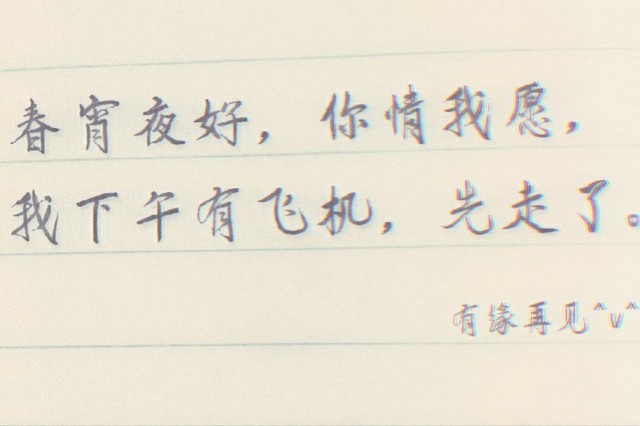 春宵夜好，你情我愿，
我下午有飞机，先走了。
有缘再见^v^